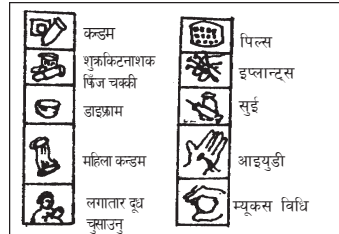 कन्डम
शुक्रकिटनाशक
फिँज चक्की
डाइफ्राम
महिला कन्डम
लगातार दूध
चुसाउनु
पिल्स
इप्लान्ट्स
सुई
आइयुडी
म्यूकस विधि